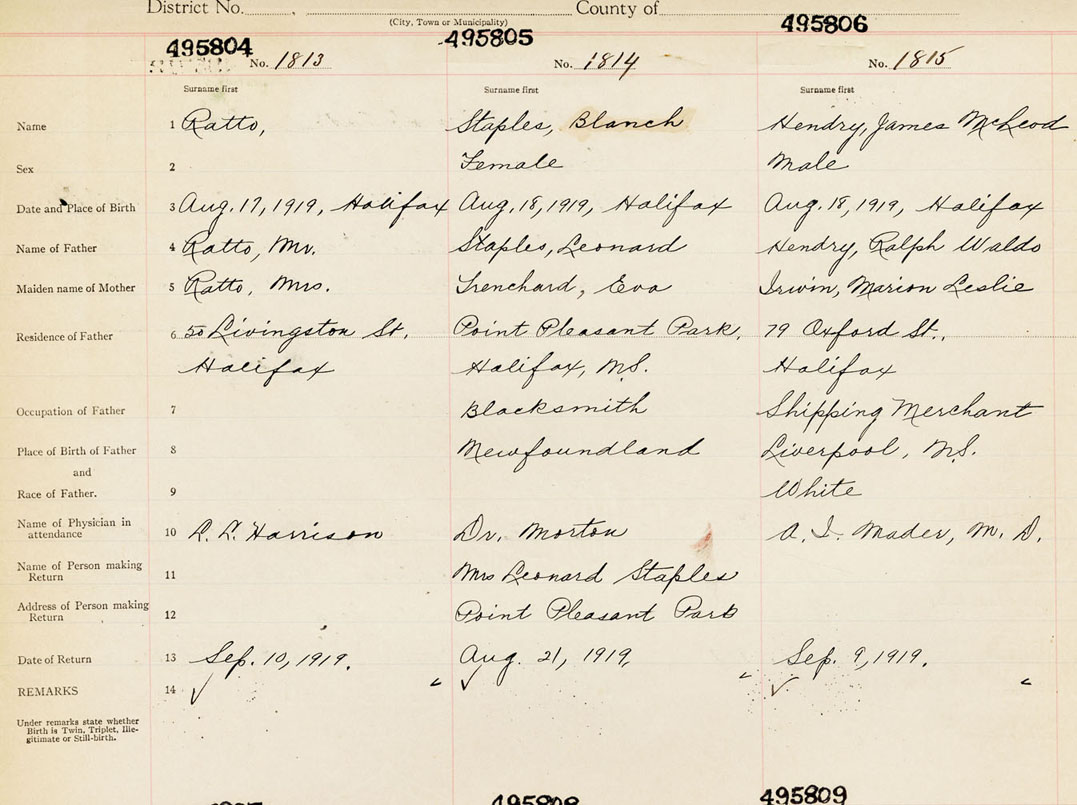 District No. , County of
(City, Town or Municipality)
495804 495805 495806
No. 1813 No. 1814 No. 1815
Surname first Surname first Surname first
Name 1 Ratto, Staples, Blanch Hendry, James McLeod
Sex 2 Female Male
Date and Place of Birth 3 Aug. 17, 1919, Halifax Aug. 18, 1919, Halifax Aug. 18, 1919, Halifax
Name of Father 4 Ratto, Mr. Staples, Leonard Hendry, Ralph Waldo
Maiden name of Mother 5 Ratto, Mrs. Trenchard, Eva Irwin, Marion Leslie
Residence of Father 6 50 Livingston St. Point Pleasant Park, 79 Oxford St.,
Halifax Halifax, N.S. Halifax
Occupation of Father 7 Blacksmith Shipping Merchant
Place of Birth of Father 8 Newfoundland Liverpool, N.S.
and
Race of Father. 9 White
Name of Physician in
attendance 10 Dr. Morton A. I. Mader, M. D.
Harrison
Name of Person making
Return 11 Mrs Leonard Staples
Address of Person making
Return 12 Point Pleasant Park
Date of Return 13 Sep. 10, 1919. Aug. 21, 1919, Sep. 9, 1919.
REMARKS 14
Under remarks state whether
Birth is Twin, Triplet, Ille-
gitimate or Still-birth.
495808 495809